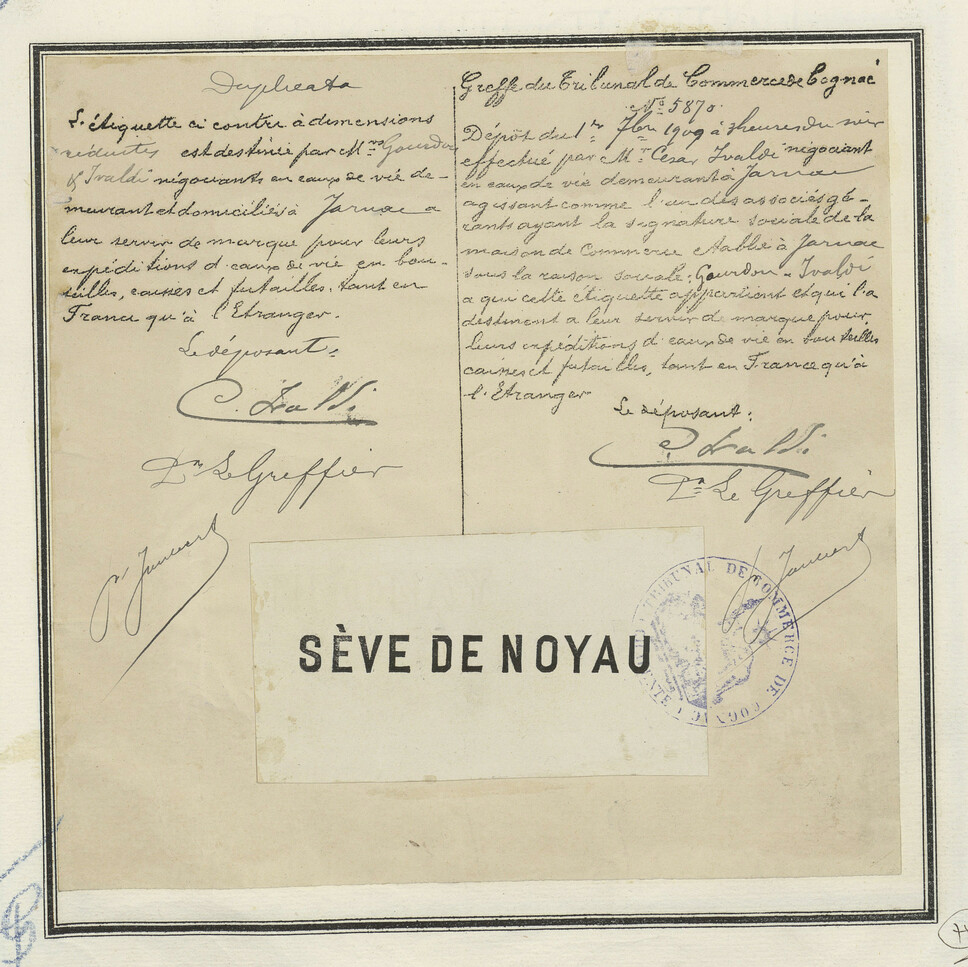 Duplicata
L'étiquette ci contre à dimensions
réduites est destinée par Mrs Gourdon
& Ivaldi négociants en eaux de vie de-
meurant et domiciliés à Jarnac a
leur servir de marque pour leurs
expéditions d'eaux de vie en bou-
teilles, caisses et futailles, tant en
France qu'à l'Etranger.
Le déposant:
C. Ivaldi
Pr Le Greffier
Greffe du Tribunal de Commerce de Cognac
No 5870
Dépôt du 1er 7bre 1909 à heures du soir
effectué par Mr César Ivaldi négociant
en eaux de vie demeurant à Jarnac
agissant comme l'un des associés gé-
rants ayant la signature sociale de la
maison de Commerce établie à Jarnac
sous la raison sociale: Gourdon & Ivaldi
a qui cette étiquette appartient et qui l'a
destinent a leur servir de marque pour
leurs expéditions d'eaux de vie en bouteilles
caisses et futailles, tant en France qu'à
l'Etranger
Le déposant:
C. Ivaldi
Pr Le Greffier
SÈVE DE NOYAU
TRIBUNAL DE COMMERCE DE COGNAC